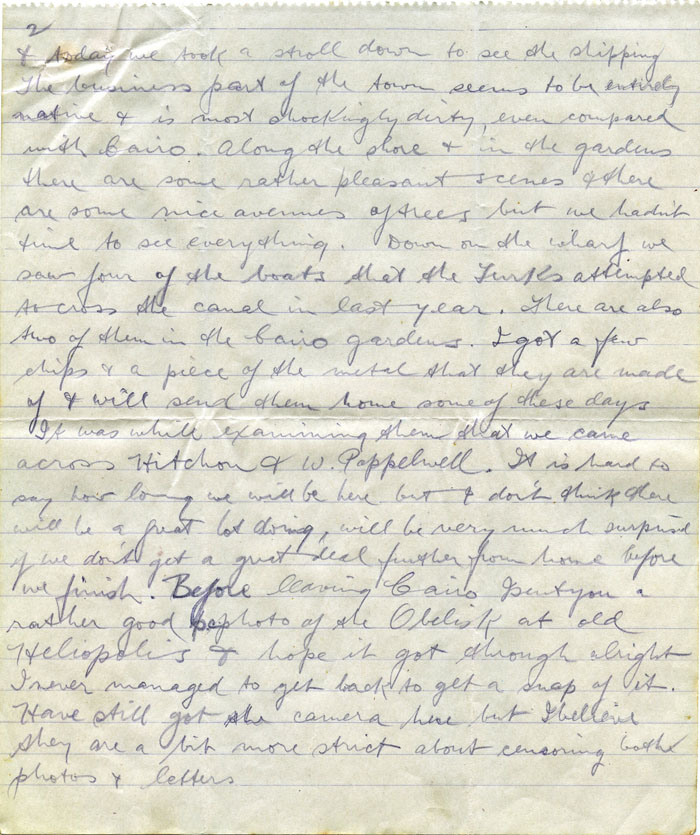 2
& today we took a stroll down to see the shipping
The business part of the town seems to be entirely
native & is most shockingly dirty, even compared
with Cairo. Along the shore & in the gardens
there are some rather pleasant scenes & there
are some nice avenues of trees but we hadn't
time to see everything. Down on the wharf we
saw four of the boats that the Turks attempted
to cross the canal in last year. There are also
two of them in the Cairo gardens. I got a few
chips & a piece of the metal that they are made
of & will send them home some of these days
It was while examining them that we came
across Hitchon & W. Poppelwell. It is hard to
say how long we will be here but I don't think there
will be a great lot doing, will be very much surprised
if we don't get a great deal further from home before
we finish. Before leaving Cairo I sent you a
rather good photo of the Obelisk at old
Heliopolis & hope it got through alright
I never managed to get back to get a snap of it.
Have still got the camera here but I believe
they are a bit more strict about censoring both
photos & letters